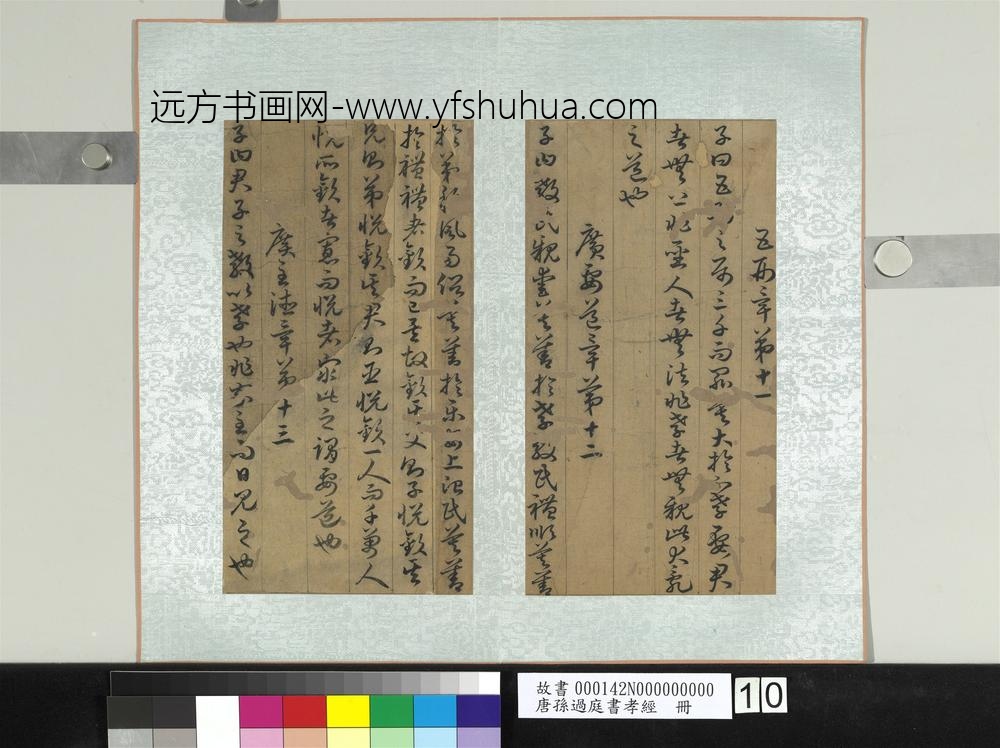 远方书画网-www.yfshuhua.com
五刑章第十一
子曰五刑之属三千而罪莫大於不孝要君
者無上非聖人者無法非孝者無親此大亂
之道也
廣要道章第十二
子曰教民親愛莫善於孝教民禮順莫善
於弟移風易俗莫善於樂安上治民莫善
於禮禮者敬而已矣故敬其父則子悅敬其
兄則弟悅敬其君則臣悅敬一人而千萬人
悅所敬者寡而悅者衆此之謂要道也
廣至德章第十三
子曰君子之教以孝也非家至而日見之也
故書 000142N000000000
唐孫過庭書孝經 冊
10